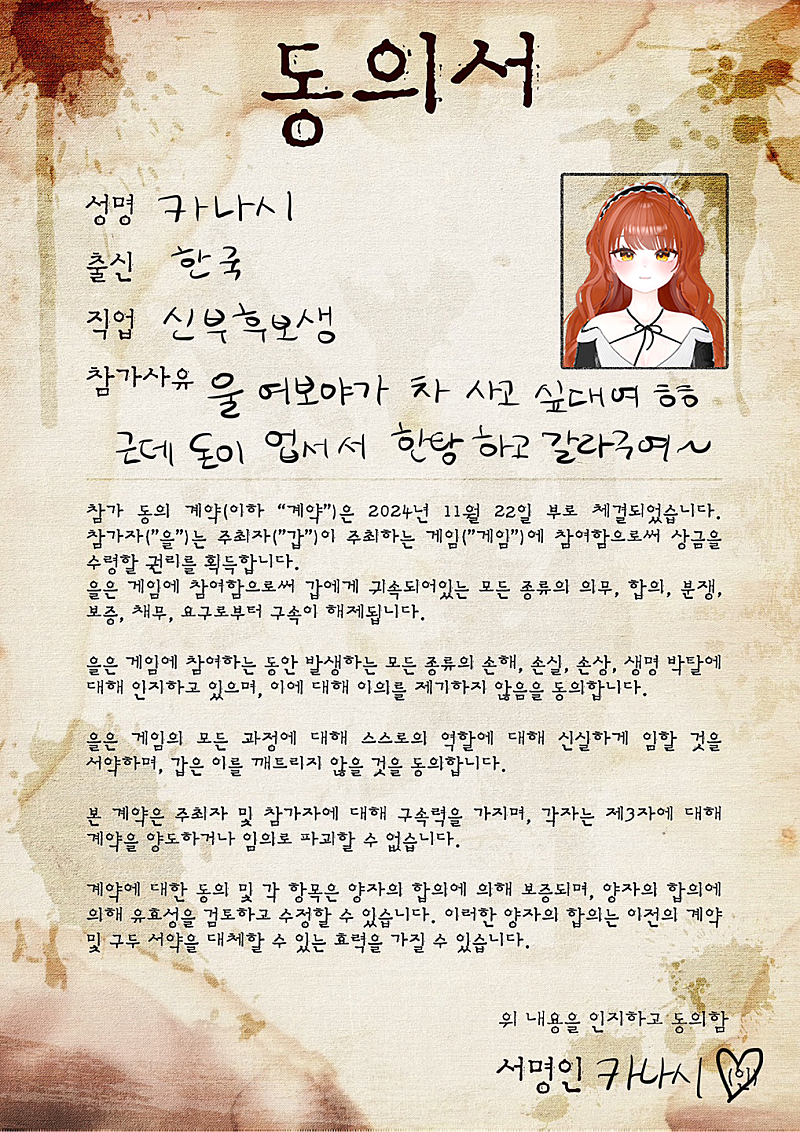 동의서
성명 카나시
출신 한국
직업 신부후보생
참가사유 울 여보야가 차 사고 싶대여 ㅎㅎ
근데 돈이 업서서 한탕 하고 갈라구여~
참가 동의 계약(이하 “계약”)은 2024년 11월 22일 부로 체결되었습니다.
참가자(”을”)는 주최자(”갑”)이 주최하는 게임(”게임”)에 참여함으로써 상금을
수령할 권리를 획득합니다.
을은 게임에 참여함으로써 갑에게 귀속되어있는 모든 종류의 의무, 합의, 분쟁,
보증, 채무, 요구로부터 구속이 해제됩니다.
을은 게임에 참여하는 동안 발생하는 모든 종류의 손해, 손실, 손상, 생명 박탈에
대해 인지하고 있으며, 이에 대해 이의를 제기하지 않음을 동의합니다.
을은 게임의 모든 과정에 대해 스스로의 역할에 대해 신실하게 임할 것을
서약하며, 갑은 이를 깨트리지 않을 것을 동의합니다.
본 계약은 주최자 및 참가자에 대해 구속력을 가지며, 각자는 제3자에 대해
계약을 양도하거나 임의로 파괴할 수 없습니다.
계약에 대한 동의 및 각 항목은 양자의 합의에 의해 보증되며, 양자의 합의에
의해 유효성을 검토하고 수정할 수 있습니다. 이러한 양자의 합의는 이전의 계약
및 구두 서약을 대체할 수 있는 효력을 가질 수 있습니다.
위 내용을 인지하고 동의함
서명인 카나시 (인)